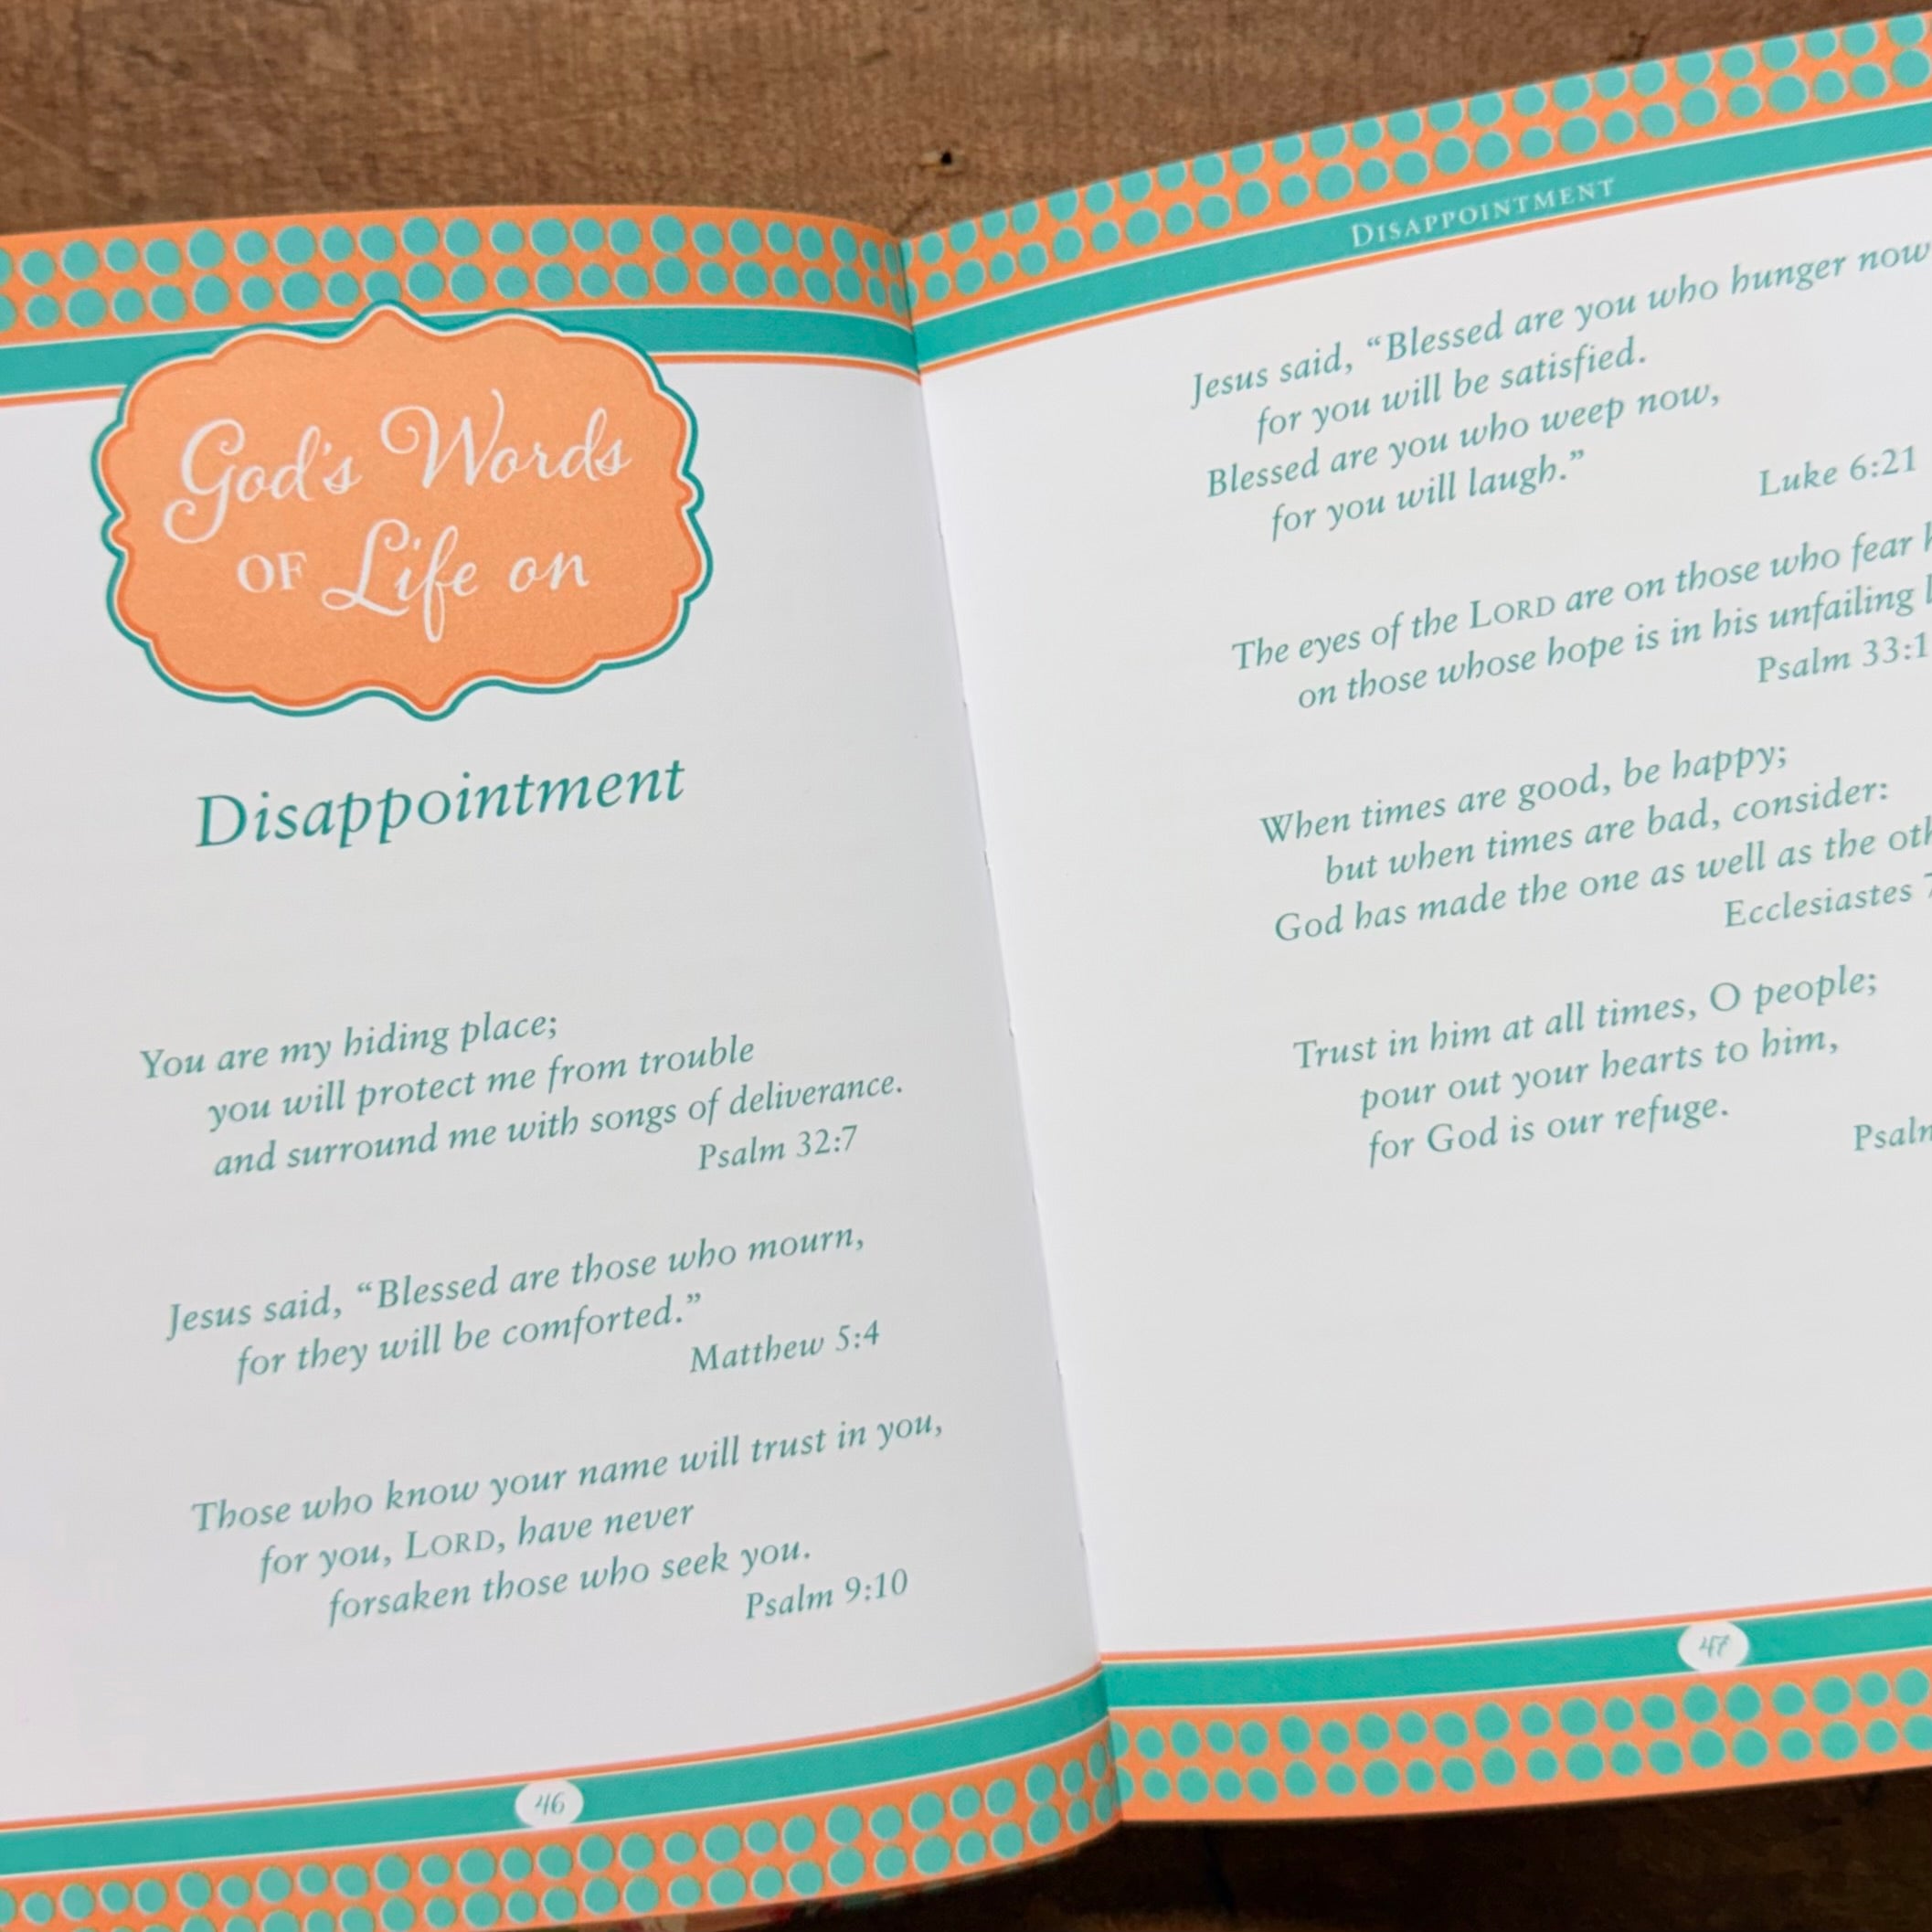 God's Words
OF Life on
Disappointment
You are my hiding place;
you will protect me from trouble
and surround me with songs of deliverance.
Psalm 32:7
Jesus said, “Blessed are those who mourn,
for they will be comforted.”
Matthew 5:4
Those who know your name will trust in you,
for you, LORD, have never
forsaken those who seek you.
Psalm 9:10
46
DISAPPOINTMENT
Jesus said, “Blessed are you who hunger now
for you will be satisfied.
Blessed are you who weep now,
for you will laugh.”
Luke 6:21
The eyes of the LORD are on those who fear
on those whose hope is in his unfailing
Psalm 33:1
When times are good, be happy;
but when times are bad, consider:
God has made the one as well as the
Ecclesiastes
Trust in him at all times, O people;
pour out your hearts to him,
for God is our refuge.
47